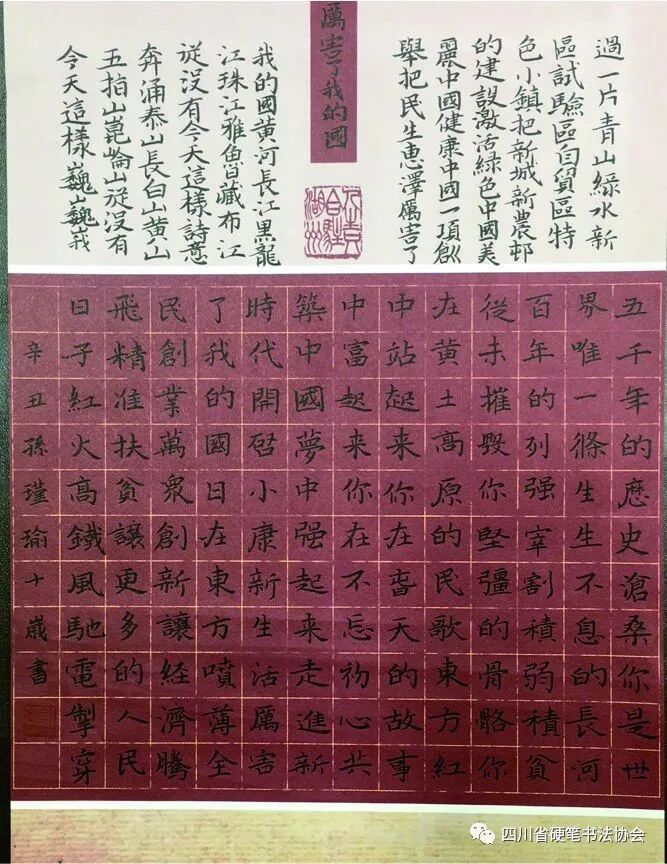 厲害了我的國
五千年的歷史滄桑你是世
界唯一條生生不息的長河
百年的列强宰割積弱積貧
從未摧毀你堅彊的骨骼你
在黃土高原的民歌東方紅
中站起来你在旾天的故事
中富起来你在不忘初心共
築中國夢中强起来走進新
時代開啓小康新生活厲害
了我的國日在東方噴薄全
民創業萬眾創新讓经濟騰
飛精准扶貧讓更多的人民
日子紅火高鐵風馳電掣穿
過一片青山綠水新
區試驗區自貿區特
色小鎮把新城新農邨
的建設激活綠色中國美
麗中國健康中國一項創
舉把民生惠澤厲害了
我的國黃河長江黑龍
江珠江雅魯藏布江
從沒有今天這樣詩意
奔涌泰山長白山黃山
五指山崑崙山從沒有
今天這樣巍巍峩
辛丑孫瑾瑜十歲書
四川省硬笔书法协会